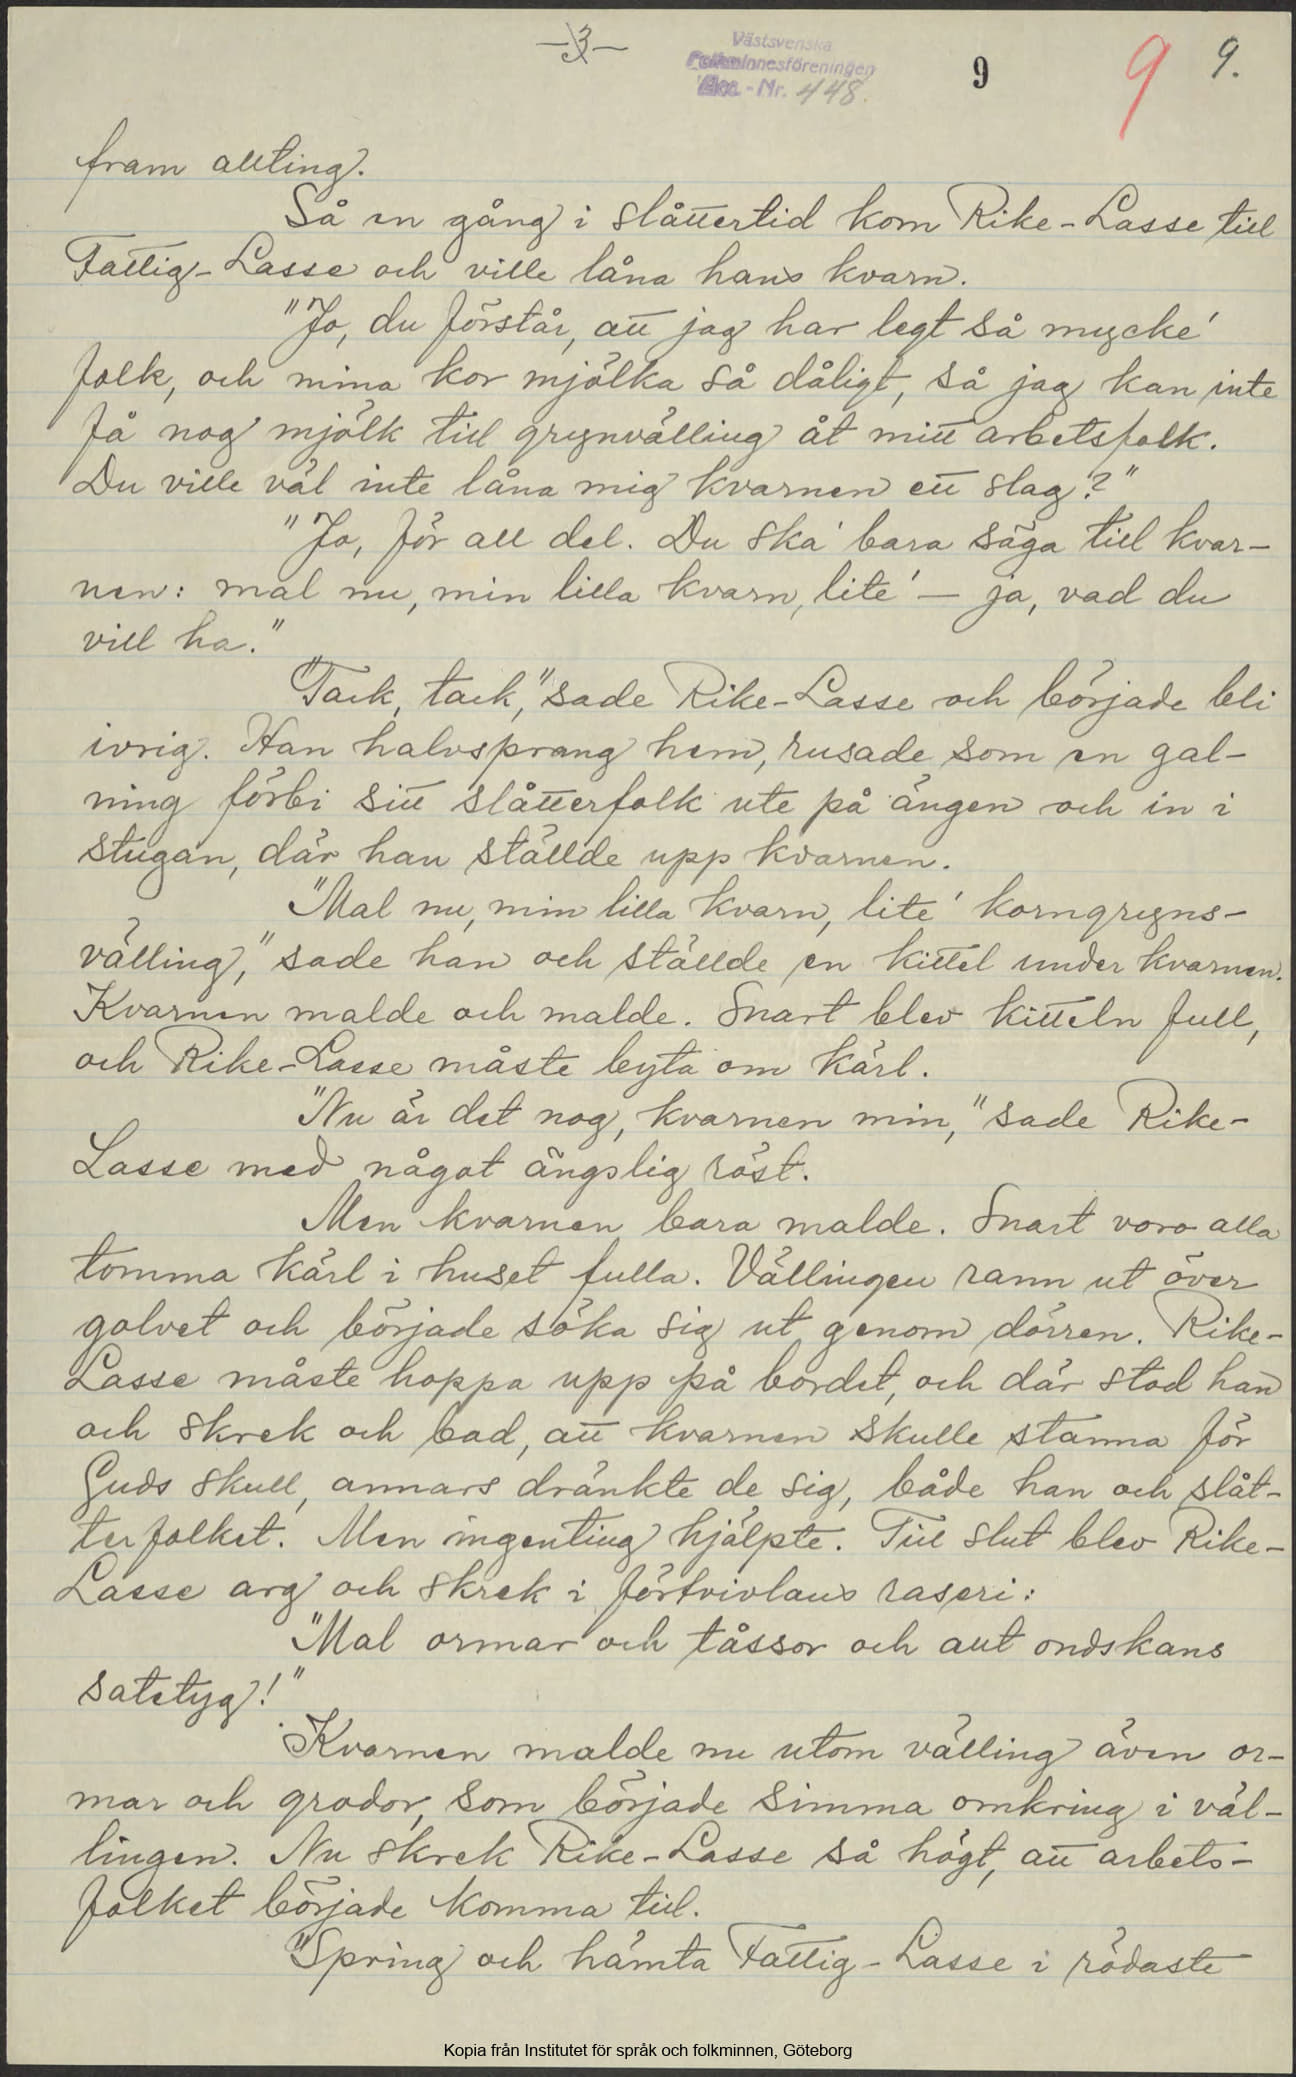 -3-
Västsvenska
Folkminnesföreningen
Acc. - Nr. 448.
9
9
9.
fram allting.
Så en gång i slåttertid kom Rike-Lasse till
Fattig-Lasse och ville låna hans kvarn.
"Jo, du förstår, att jag har legt så mycke'
folk, och mina kor mjölka så dåligt, så jag kan inte
få nog mjölk till grynvälling åt mitt arbetsfolk.
Du ville väl inte låna mig kvarnen ett slag?"
"Jo, för all del. Du ska' bara säga till kvar-
nen: mal nu, min lilla kvarn, lite' – ja, vad du
vill ha."
"Tack, tack," sade Rike-Lasse och började bli
ivrig. Han halvsprang hem, rusade som en gal-
ning förbi sitt slåtterfolk ute på ängen och in i
stugan, där han ställde upp kvarnen.
"Mal nu, min lilla kvarn, lite' korngryns-
välling," sade han och ställde en kittel under kvarnen.
Kvarnen malde och malde. Snart blev kitteln full,
och Rike-Lasse måste byta om kärl.
"Nu är det nog, kvarnen min," sade Rike-
Lasse med något ängslig röst.
Men kvarnen bara malde. Snart voro alla
tomma kärl i huset fulla. Vällingen rann ut över
golvet och började söka sig ut genom dörren. Rike-
Lasse måste hoppa upp på bordet, och där stod han
och skrek och bad, att kvarnen skulle stanna för
Guds skull, annars dränkte de sig, både han och slåt-
terfolket. Men ingenting hjälpte. Till slut blev Rike-
Lasse arg och skrek i förtvivlans raseri:
"Mal ormar och tåssor och aut ondskans
satetyg!"
Kvarnen malde nu utom välling även or-
mar och grodor, som började simma omkring i väl-
lingen. Nu skrek Rike-Lasse så högt, att arbets-
folket började komma till.
"Spring och hämta Fattig-Lasse i rödaste
Kopia från Institutet för språk och folkminnen, Göteborg